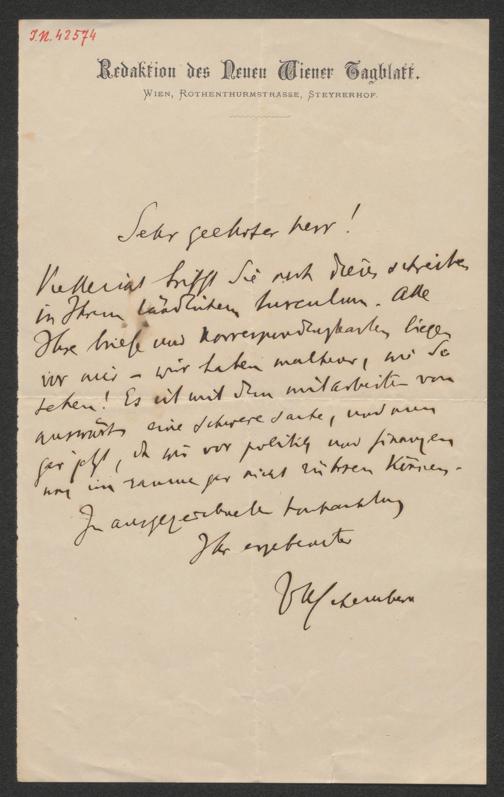 J.N. 42574
Redaktion des Neuen Wiener Tagblatt.
WIEN, ROTHENTHURMSTRASSE, STEYRERHOF.
Sehr geehrter Herr!
Vielleicht trifft Sie noch dieses schreiben
in Ihrem ländlichen tusculum. Alle
Ihre briefe und Korrespondenzkarten liegen
vor mir – wir haben malheur, wie Sie
sehen! Es ist mit den mitarbeitern von
auswärts eine schwere sache, und nun
gar jetzt, da wir vor politik und finanzen
uns im raume gar nicht rühren können.
In ausgezeichneter hochachtung
Ihr ergebenster